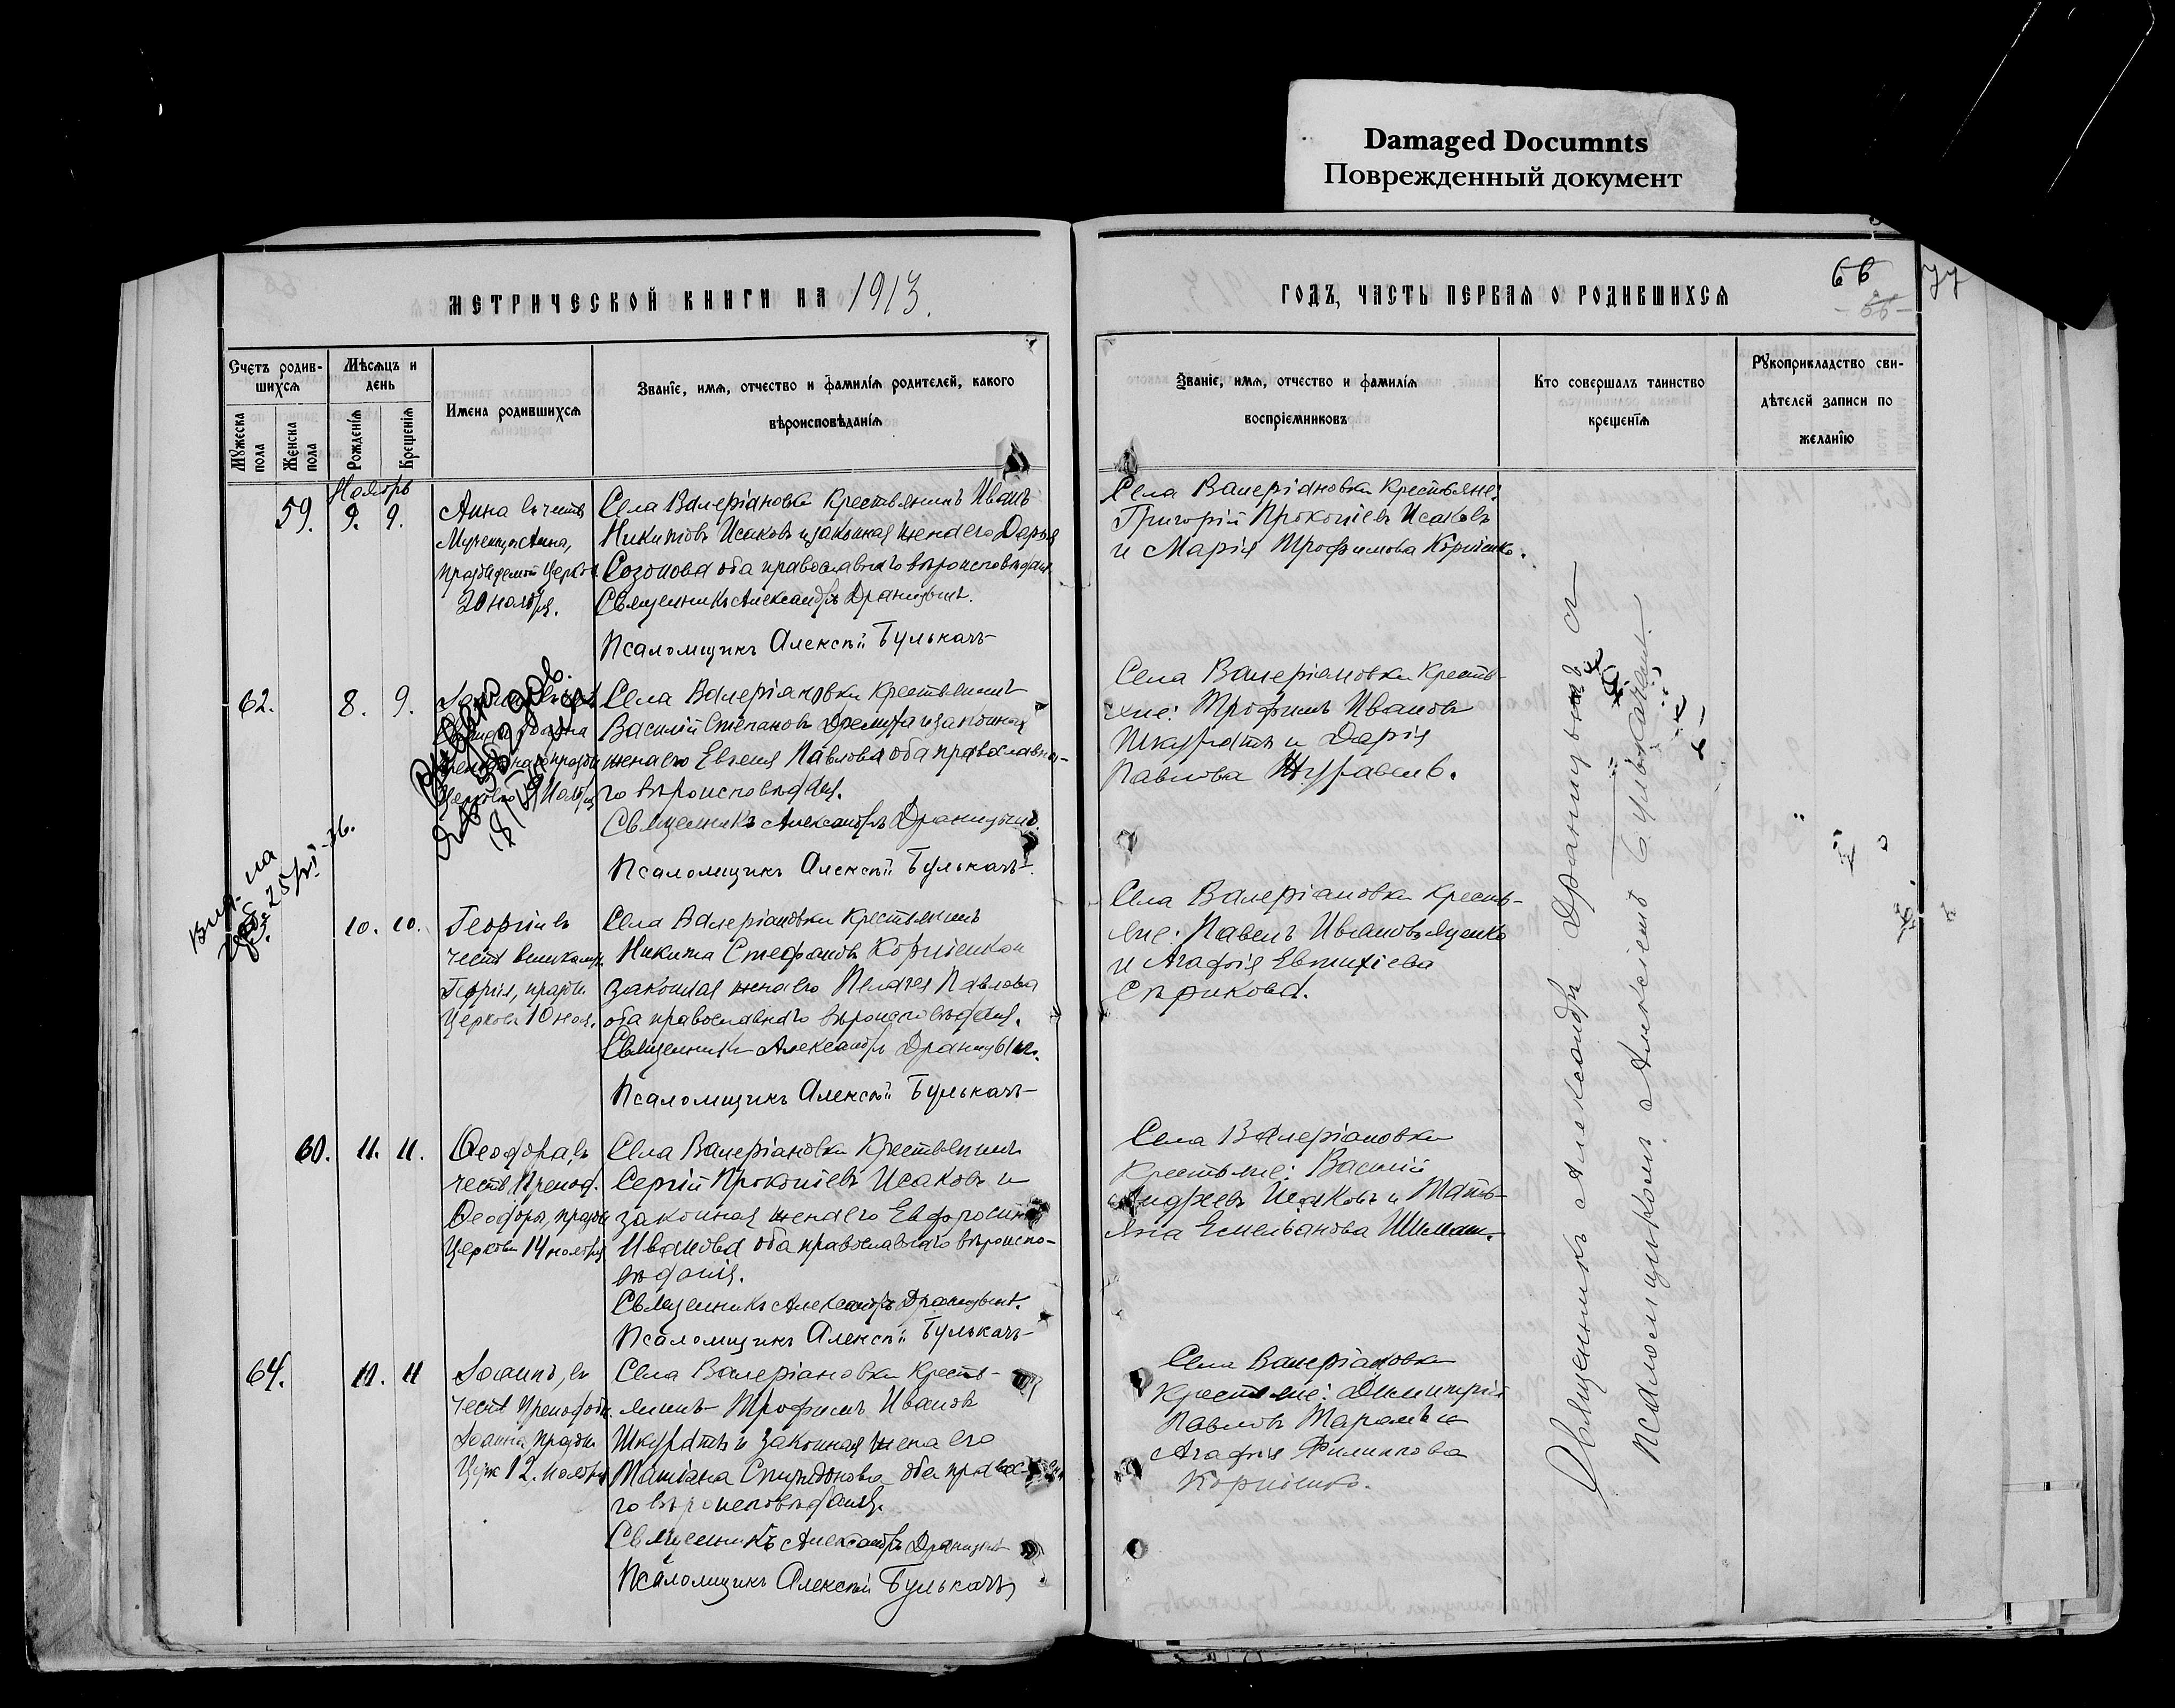 Damaged Documnts
Поврежденный документ
МЕТРИЧЕСКОЙ КНИГИ НА 1913.
Счетъ родив-
шихся
Мѣсяцъ и
день
Имена родившихся
Званіе, имя, отчество и фамилія родителей, какого
вѣроисповѣданія
Мужеска
пола
Женска
пола
Рожденія
Крещенія
Ноябрь
59. 9. 9.
Анна въ честь
Мученицы Анны,
празднуемой Церков.
20 ноября.
Села Валеріановки крестьянинъ Иванъ
Никитовъ Исаковъ и законная жена его Дарья
Созонова оба православнаго вѣроисповѣданія
Священникъ Александръ Драницынъ.
Псаломщикъ Алексѣй Булькачъ
62. 8. 9.
Села Валеріановки крестьянинъ
Василій Степановъ и законная
жена его Евгенія Павлова оба православна-
го вѣроисповѣданія.
Священникъ Александръ Драницынъ.
Псаломщикъ Алексѣй Булькачъ
63. 10. 10.
Георгій въ
честь великомуч.
Георгія, праздн.
Церковію 10 ноя.
Села Валеріановки крестьянинъ
Никита Стефановъ Корніенко и
законная жена его Пелагея Павлова
оба православнаго вѣроисповѣданія.
Священникъ Александръ Драницынъ.
Псаломщикъ Алексѣй Булькачъ
60. 11. 11.
Ѳеодора, въ
честь Препод.
Ѳеодоры, праздн.
Церковію 14 ноября
Села Валеріановки крестьянинъ
Сергій Прокопіевъ Исаковъ и
законная жена его Евфросинія
Иванова оба православнаго вѣроиспо-
вѣданія.
Священникъ Александръ Драницынъ.
Псаломщикъ Алексѣй Булькачъ
64. 11. 11
Іоаннъ, въ
честь Преподобн.
Іоанна, праздн.
Церк 12. ноября
Села Валеріановки кресть-
янинъ Трофимъ Ивановъ
Шкуратъ и законная жена его
Татіана Спиридонова оба правос
го вѣроисповѣданія.
Священникъ Александръ Драницынъ
Псаломщикъ Алексѣй Булькачъ
ГОДЪ, ЧАСТЬ ПЕРВАЯ О РОДИВШИХСЯ
66
77
Званіе, имя, отчество и фамилія
воспріемниковъ
Кто совершалъ таинство
крещенія
Рукоприкладство сви-
дѣтелей записи по
желанію
Села Валеріановки крестьяне:
Григорій Прокопіевъ Исаковъ
и Марія Трофимова Корніенко.
Села Валеріановки кресть-
яне: Трофимъ Ивановъ
Шкуратъ и Дарія
Павлова Журавель.
Села Валеріановки кресть-
яне: Павелъ Ивановъ Яценко
и Агафія Евтихіева
Сѣрикова.
Села Валеріановки
Крестьяне: Василій
Андреевъ Исаковъ и Тать-
яна Емельянова
Села Валеріановки
Крестьяне: Димитрій
Павловъ Таранъ и
Агафія Филиппова
Корніенко.
Священникъ Александръ Драницынъ съ
псаломщикомъ Алексѣемъ Булькачемъ.